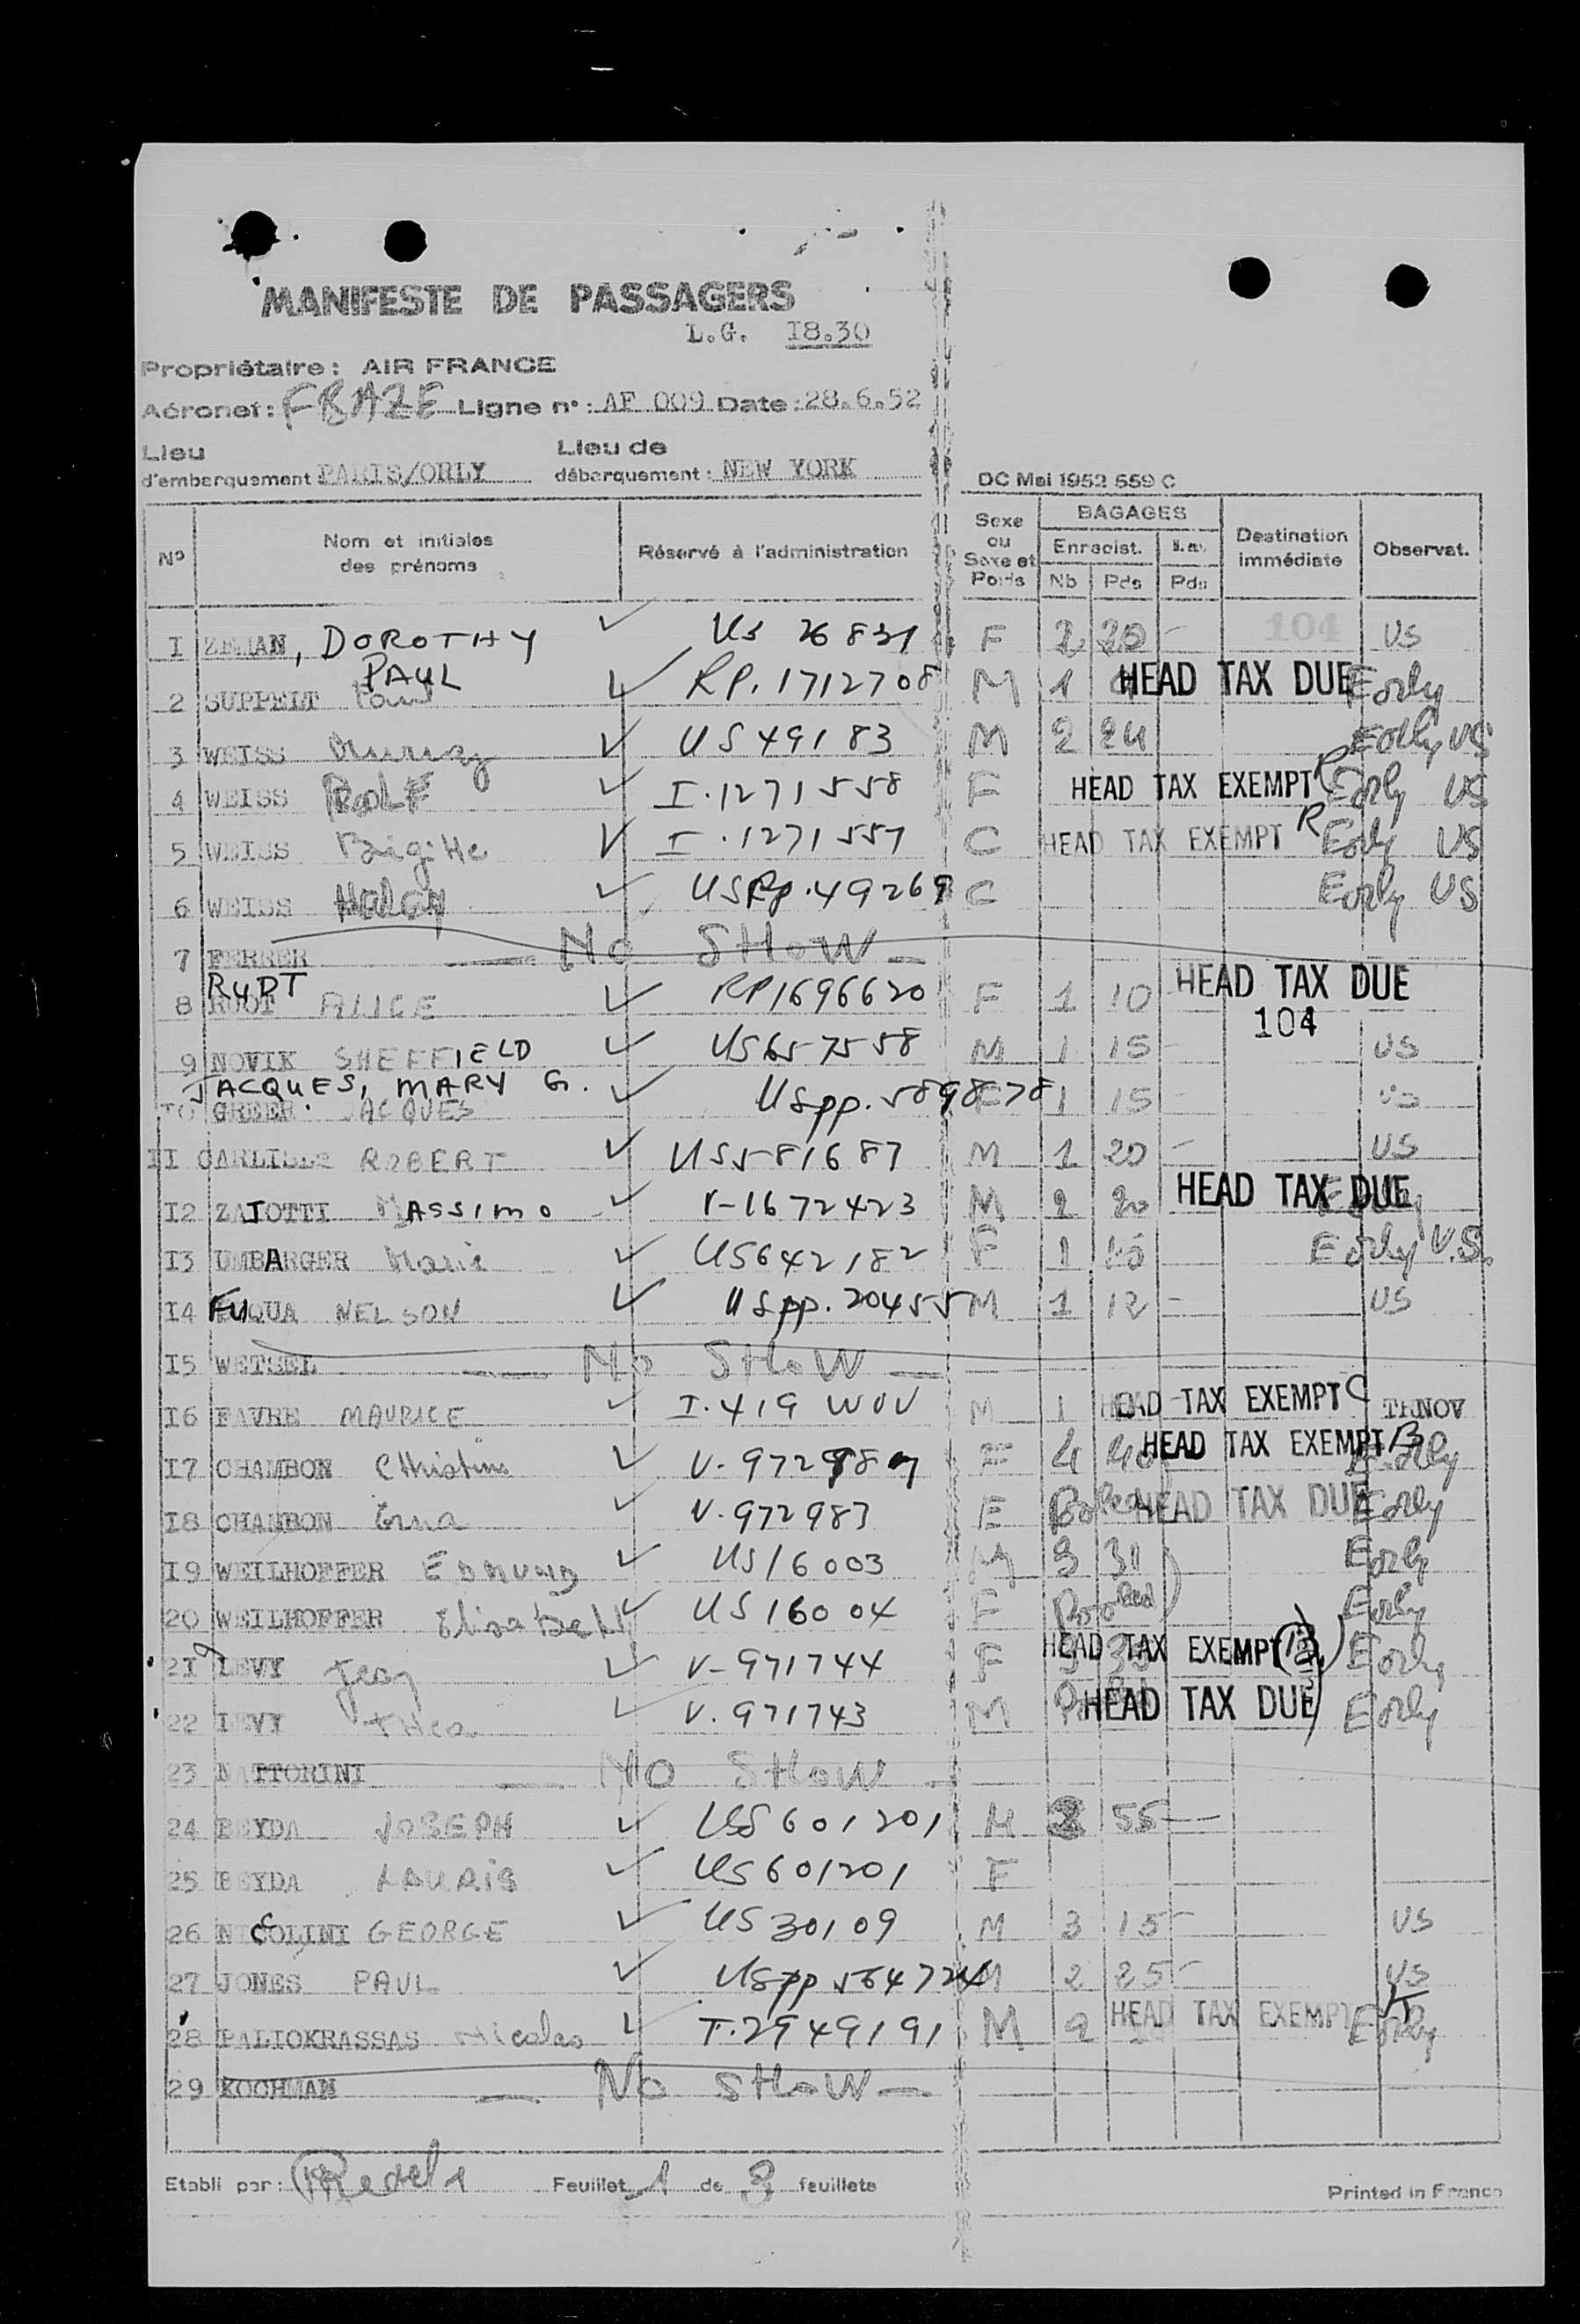 MANIFESTE DE PASSAGERS
L.G. I8.30
Propriétaire: AIR FRANCE
Aéronef: FBAZE Ligne n°: AF 009 Date: 28.6.52
Lieu d'embarquement PARIS/ORLY Lieu de débarquement: NEW YORK
DC Mai 1952 559 C
N° Nom et initiales des prénoms Réservé à l'administration Sexe ou Sexe et Poids BAGAGES Enregist. Nb Pds Pds Destination immédiate Observat.
I ZEMAN, DOROTHY US 26831 F 2 20 - 104 US
2 SUPPELT PAUL Paul RP.1712708 M 1 HEAD TAX DUE Eorly
3 WEISS Murray US 49183 M 2 24 Eorly US
4 WEISS I.1271558 F HEAD TAX EXEMPT R Eorly US
5 WEISS Brigitte I.1271557 C HEAD TAX EXEMPT R Eorly US
6 WEISS Helen USPp.49269 C Eorly US
7 FERRER - NO SHOW -
8 ROOT RUDT ALICE RP1696620 F 1 10 HEAD TAX DUE
104
9 NOVIK SHEFFIELD US657558 M 1 15 - US
JACQUES, MARY G.
IO GREER. JACQUES USpp.5898878 F 1 15 - US
II CARLISLE ROBERT US581687 M 1 20 - US
I2 ZAJOTTI MASSIMO V-1672423 M 2 20 HEAD TAX DUE
I3 UMBARGER Marie US642182 F 1 15 Eorly U.S.
I4 FUQUA NELSON USpp.20455 M 1 12 - US
I5 WETSEL - No SHoW -
I6 FAVRE MAURICE I.419 WUV M 1 HEAD TAX EXEMPT C TRNOV
I7 CHAMBON Christine F 4 40 HEAD TAX EXEMPT B Eorly
I8 CHAMBON Erna V.972983 F Pooled HEAD TAX DUE Eorly
I9 WEILHOFFER EDMUND US16003 M 3 31 Eorly
20 WEILHOFFER Elisabeth US16004 F Pooled Eorly
2I LEVY Jean V-971744 F HEAD TAX EXEMPT Eorly
22 LEVY Thea V.971743 M HEAD TAX DUE Eorly
23 NATTORINI - NO SHOW -
24 BEYDA JOSEPH US601201 M 55 -
25 BEYDA LAURIS US601201 F
26 NICOLINI GEORGE US30109 M 3 15 - US
27 JONES PAUL USpp 564724 M 2 25 - US
28 PALIOKRASSAS Nicolas T.2949191 M 2 HEAD TAX EXEMPT Eorly
29 KOCHMAN - No SHoW -
Etabli par: Feuillet 1 de 3 feuillets
Printed in France